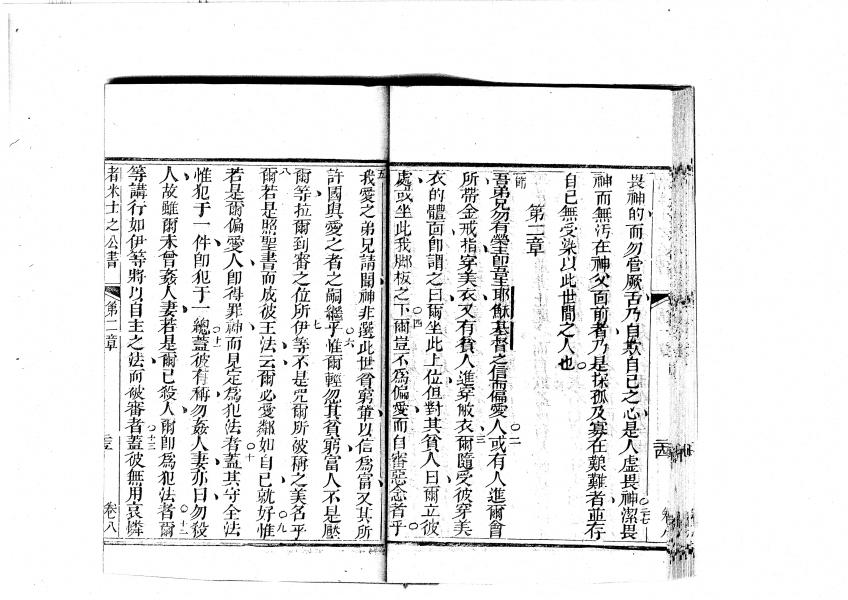 畏神的而勿管厥舌乃自欺自己之心是人虛畏神○二七潔畏
神而無汚在神父面前者乃是探孤及寡在艱難者並存
自己無受染以此世間之人也○
第二章
節
吾弟兄勿有榮主卽吾主耶穌基督之信而偏愛人○二或有人進爾會
所帶金戒指穿美衣又有貧人進穿敝衣○三爾隨受彼穿美
衣的體面卽謂之曰爾坐此上位但對其貧人曰爾立彼
處或坐此我脚板之下○四爾豈不為偏愛而自審惡念者乎○
五
我愛之弟兄請聞神非選此世貧窮輩以信為富又其所
許國與愛之者之嗣繼乎○六惟爾輕忽其貧窮富人不是壓
爾等拉爾到審之位所○七伊等不是咒爾所被稱之美名乎○
八
爾若是照聖書而成彼王法云爾必愛鄰如自己就好○九惟
若是爾偏愛人卽得罪神而見定為犯法者○十蓋其守全法
惟犯于一件卽犯于一總○十一蓋彼有稱勿姦人妻亦曰勿殺
人故雖爾未曾姦人妻若是爾已殺人爾卽為犯法者○十二爾
等講行如伊等將以自主之法而被審者○十三蓋彼無用哀憐
者米士之公書 第二章 卷八